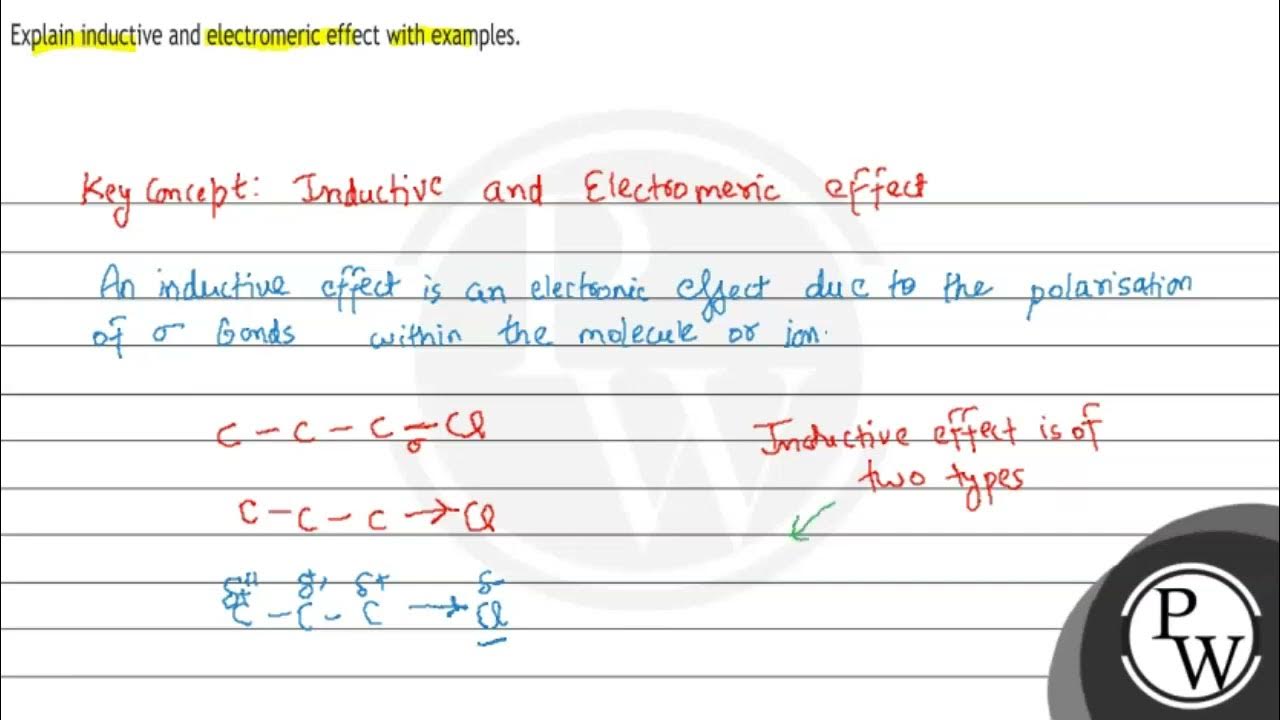 Explain inductive and electromeric effect with examples.
Key Concept: Inductive and Electromeric effect
An inductive effect is an electronic effect due to the polarisation
of σ bonds within the molecule or ion.
C – C – C – Cl
σ
Inductive effect is of
two types
C – C – C → Cl
δ+ δ+ δ-
C – C – C → Cl
P
W
PW